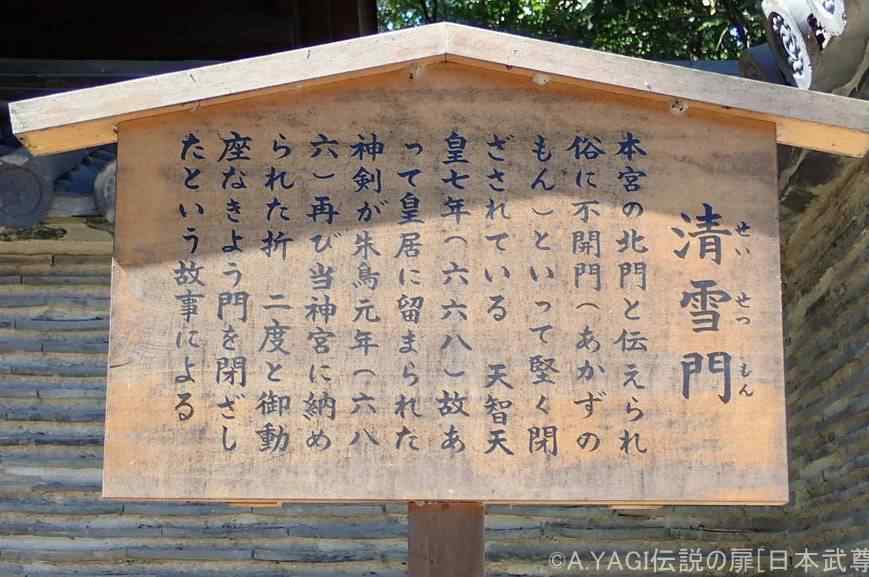 清雪門
せいせつもん
本宮の北門と伝えられ
俗に不開門(あかずの
もん)といって堅く閉
ざされている 天智天
皇七年(六六八)故あ
って皇居に留まられた
神剣が朱鳥元年(六八
六)再び当神宮に納め
られた折 二度と御動
座なきよう門を閉ざし
たという故事による
©A.YAGI伝説の扉[日本武尊